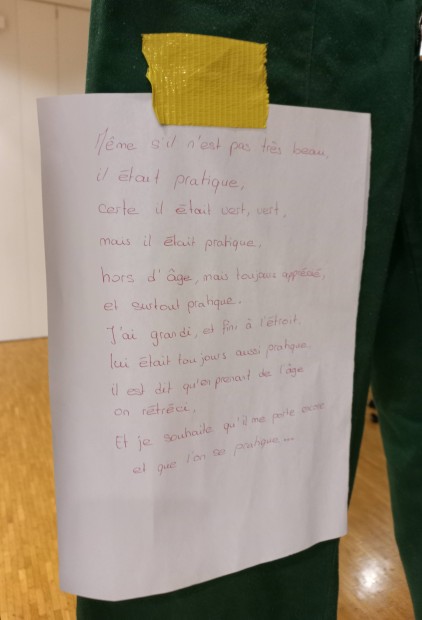 Même s'il n'est pas très beau,
il était pratique,
certe il était vert, vert,
mais il était pratique.
hors d'âge, mais toujours apprécié,
et surtout pratique.
J'ai grandi, et fini à l'étroit,
lui était toujours aussi pratique.
il est dit qu'en prenant de l'âge
on rétréci,
Et je souhaite qu'il me porte encore
et que l'on se pratique...